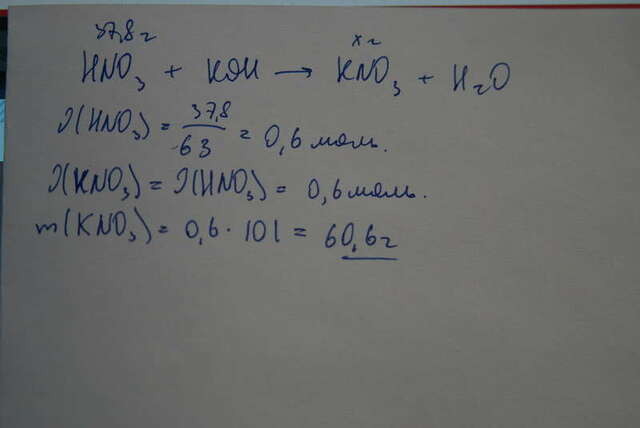 37,8г хг
HNO₃ + KOH → KNO₃ + H₂O
ν(HNO₃) = 37,8/63 = 0,6 моль.
ν(KNO₃) = ν(HNO₃) = 0,6 моль.
m(KNO₃) = 0,6 · 101 = 60,6г